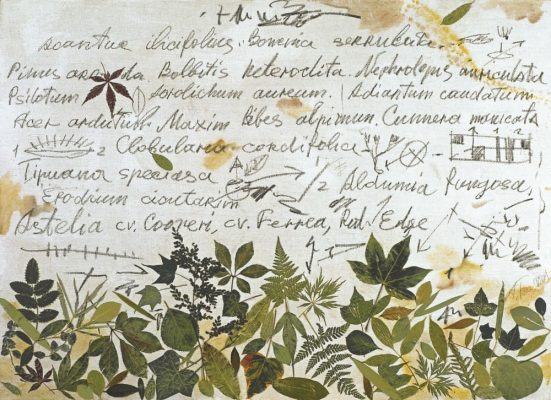 acantus ilicifolius. Boweria serrulata.
Pinus ar da. Bolbitis heteroclita. Nephrolepis auriculata
Psilotum aureum. Adiantum caudatum.
Acer ardutum. Maxim Ribes alpinum. Cunnera monicata
1 2 Clobularia condifolia
Tipuana speciasa
2 Aldumia Fungosa,
Erodium cicutarim
Astelia cv. Cooperi, cv. Ferrea, Rub. Edge